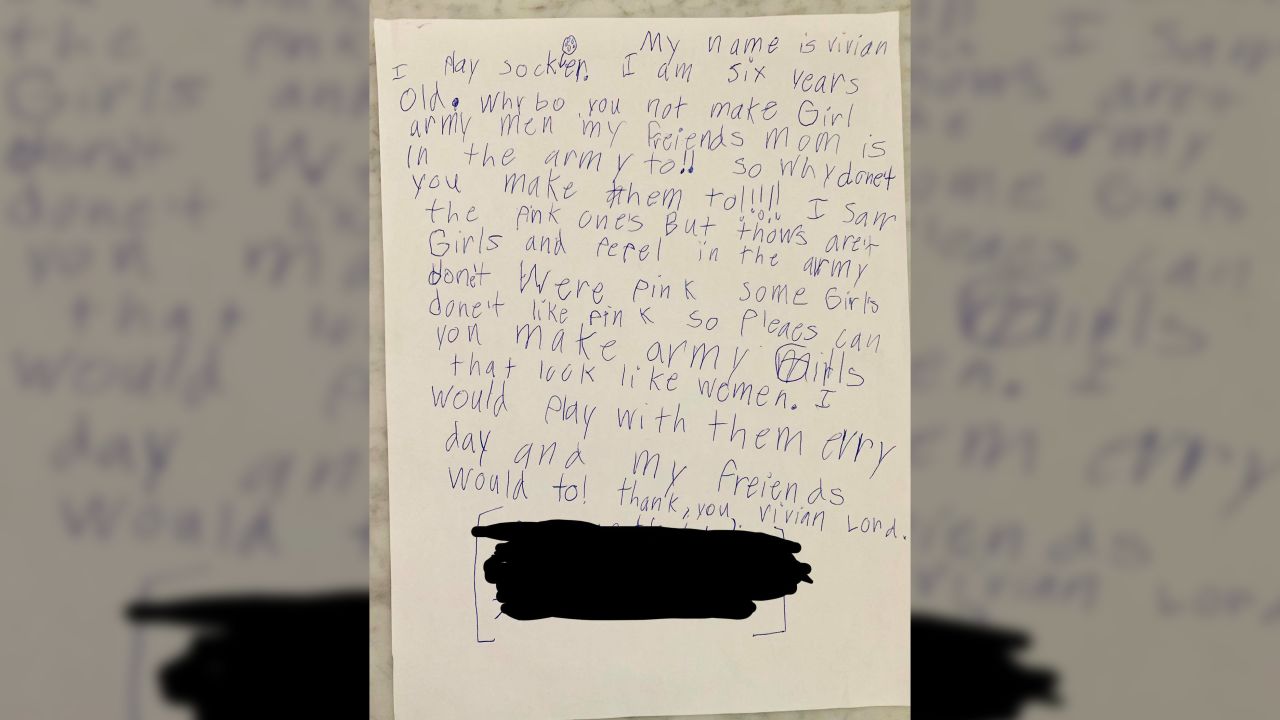 My name is vivian
I play socker. I am six years
old. Why bo you not make Girl
army men my freiends mom is
in the army to!! so why donet
you make them to!!!!! I Sam
the pink ones But thows aret
Girls and pepel in the army
donet Were pink some Girls
donet like pink so Pleaes can
you make army Girls
that look like women. I
would play with them evry
day and my freiends
Would to! thank, you vivian Lord.